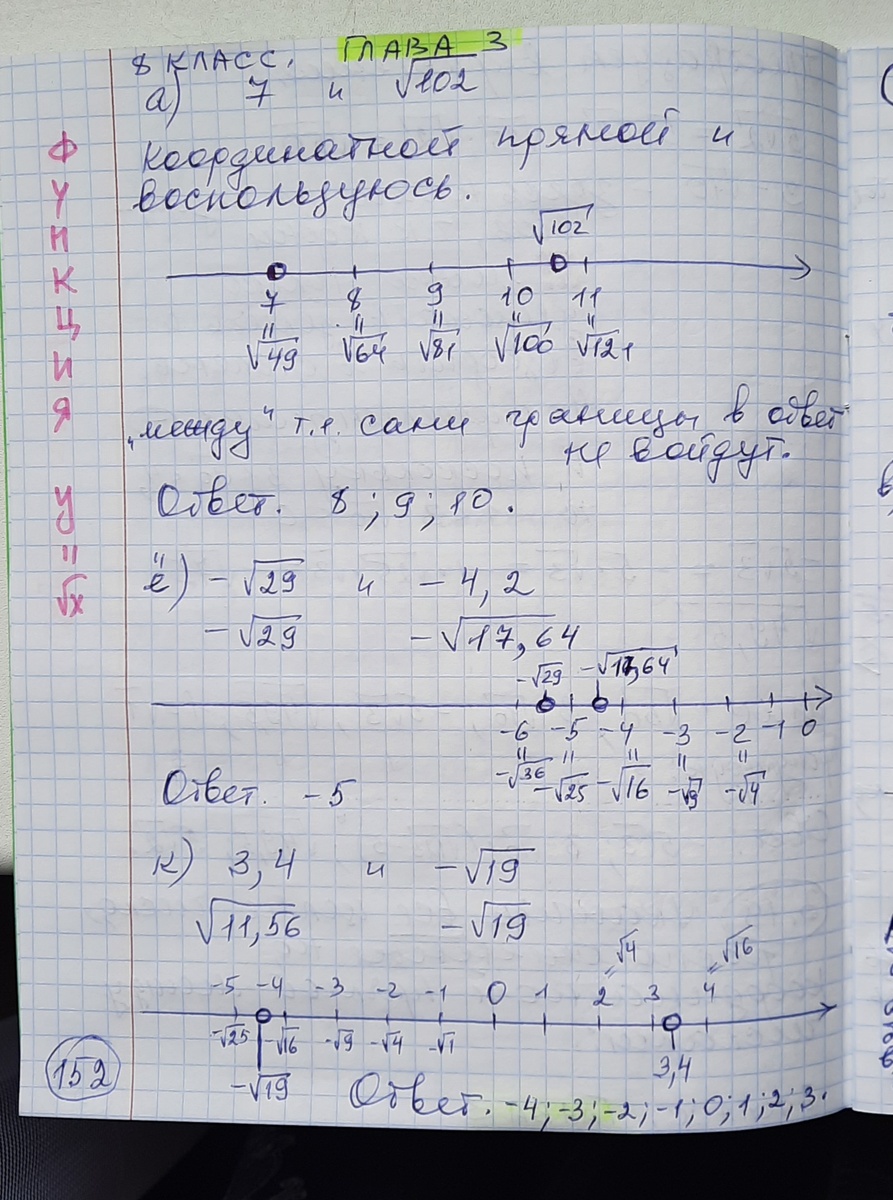 8 КЛАСС. ГЛАВА 3
а) 7 и √102
координатной прямой и
воспользуюсь.
√102
7 8 9 10 11
" " " " "
√49 √64 √81 √100 √121
„между“ т.е. сами границы в ответ
не войдут.
Ответ. 8; 9; 10.
ё) -√29 и -4,2
-√29 -√17,64
-√29 -√17,64
-6 -5 -4 -3 -2 -1 0
" " " " "
-√36 -√25 -√16 -√9 -√4
Ответ. -5
к) 3,4 и -√19
√11,56 -√19
√4 √16
-5 -4 -3 -2 -1 0 1 2 3 4
-√25 -√16 -√9 -√4 -√1
-√19 3,4
Ответ. -4; -3; -2; -1; 0; 1; 2; 3.
152
ФУНКЦИЯ y = √x